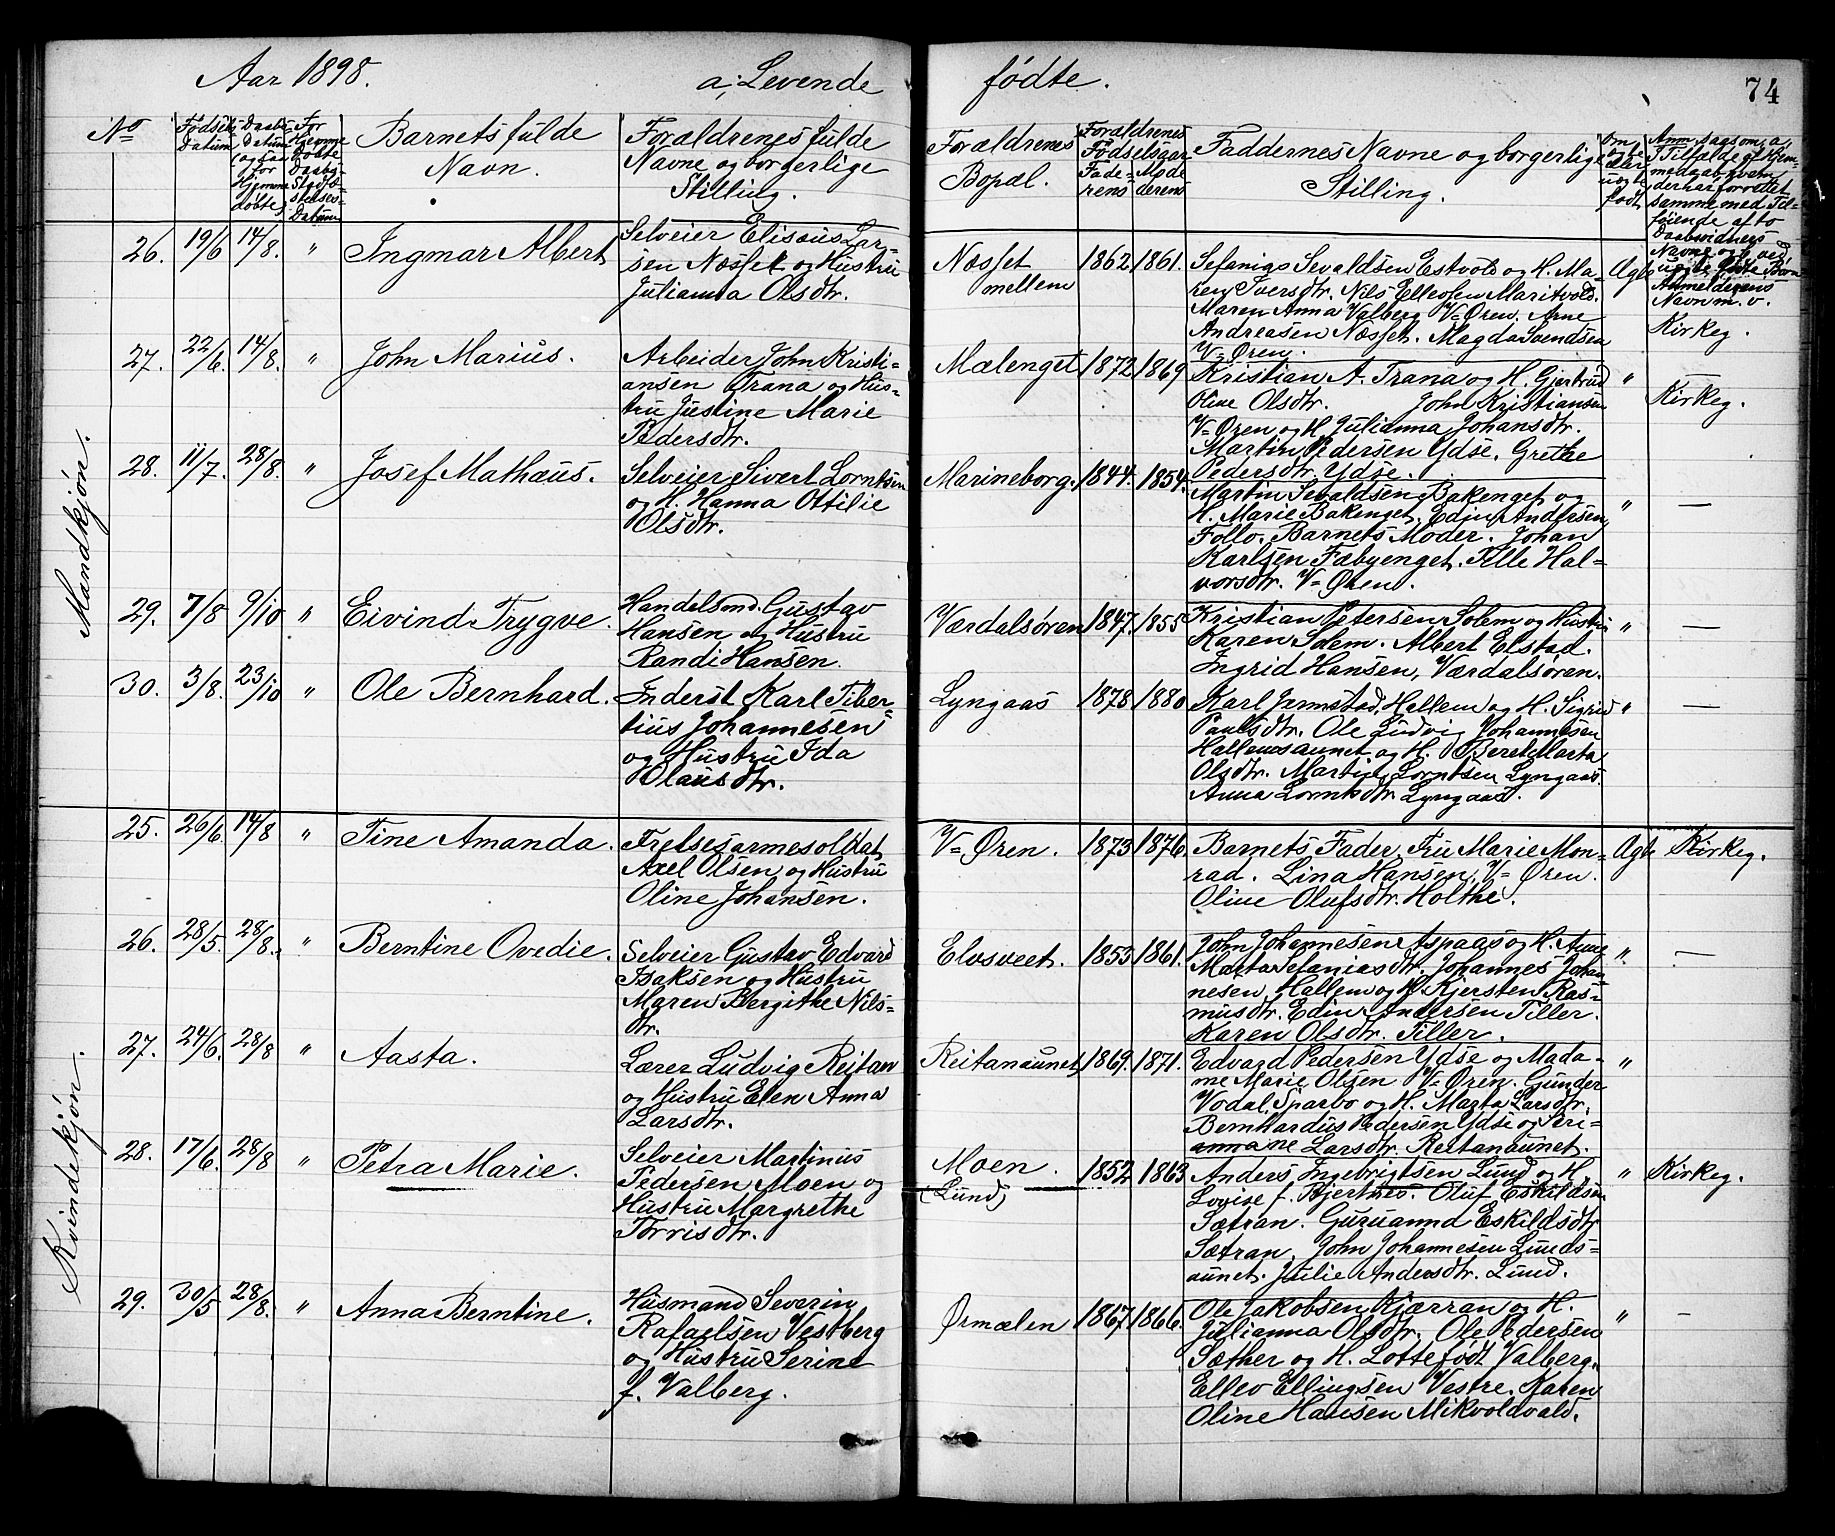 Aar 1898. a, Levende fødte. 74
No
Fødsels Datum
Daabs Datum (ogsaa for Hjemme døbte)
For Hjemme Døbte Daabs Stadfæstelses Datum
Barnets fulde
Navn.
Forældrenes fulde
Navne og borgerlige
Stilling.
Forældrenes
Bopæl.
Forældrenes
Fødselsaar
Faderens Moderens
Faddernes Navne og borgerlige
Stilling.
Mandkjøn.
26. 19/6 14/8. " Ingmar Albert
Selveier Elisæus Lar-
sen Næsset og Hustru
Julianna Olsdtr.
Næsset
mellem
1862. 1861.
Sefanias Sevaldsen Estvold og H. Ma-
ren Iversdtr. Nils Ellevsen Maritvold.
Maren Anna Valberg V=Øren. Arne
Andreasen Næsset. Magda Svendsen
V=Øren.
Ægt
Kirkeg.
27. 22/6. 14/8. " John Marius.
Arbeider John Kristi-
ansen Trana og Hus-
tru Justine Marie
Pedersdtr.
Mælenget 1872 1869
Kristian A. Trana og H. Gjertrud
Oline Olsdtr. John Kristiansen
V=Øren og H. Julianna Johansdtr.
Martin Pedersen Ydse. Grethe
Pedersdtr. Ydse.
"
Kirkeg.
28. 11/7. 28/8. " Josef Mathæus.
Selveier Sivert Lorntsen
og H. Hanna Ottilie
Olsdtr.
Marineborg. 1844. 1854.
Martin Sevaldsen Bakenget og
H. Marie Bakenget. Edin Andersen
Follo. Barnets Moder. Johan
Karlsen Fabyenget. Elle Hal-
vorsdtr. V=Øren.
" —
29. 7/8 9/10 " Eivind Trygve.
Handelsmd. Gustav
Hansen og Hustru
Randi Hansen.
Værdalsøren 1847. 1855
Kristian Petersen Solem og Hustru
Karen Solem. Albert Elstad.
Ingrid Hansen, Værdalsøren.
" —
30. 3/8. 23/10 " Ole Bernhard.
Inderst Karl Tiber-
tius Johannesen
og Hustru Ida
Olausdtr.
Lyngaas 1878. 1880
Karl Jermstad, Hellem og H. Sigrid
Paulsdtr. Ole Ludvig Johannesen
Hallemsaunet og H. Beret Marta
Olsdtr. Martin Lorntsen Lyngaas.
Anna Lorntsdtr. Lyngaas.
" —
Kvindekjøn.
25. 26/6. 14/8 " Tine Amanda.
Frelsesarmesoldat
Axel Olsen og Hustru
Oline Johansen.
V=Øren. 1873 1876.
Barnets Fader, Fru Marie Mon-
rad. Lina Hansen, V=Øren.
Oline Olufsdtr. Holthe.
Ægt Kirkeg.
26. 28/5. 28/8. " Berntine Ovedie.
Selveier Gustav Edvard
Isaksen og Hustru
Maren Bergithe Nils-
dtr.
Elvsveet. 1853 1861.
John Johannesen Aspaas og H. Anne
Marta Sefaniasdtr. Johannes Johan-
nesen Hallem og H. Kjersten Ras-
musdtr. Edin Andersen Tiller.
Karen Olsdtr. Tiller.
" —
27. 24/6. 28/8 " Aasta.
Lærer Ludvig Reitan
og Hustru Elen Anna
Larsdtr.
Reitanaunet, 1869. 1871.
Edvard Pedersen Ydse og Mada-
me Marie Olsen V=Øren. Gunder
Vodal, Sparbo og H. Marta Larsdtr.
Bernhardus Pedersen Ydse og Seri-
anna ne Larsdtr. Reitanaunet.
"
28. 17/6. 28/8 " Petra Marie.
Selveier Martinus
Pedersen Moen og
Hustru Margrethe
Torrisdtr.
Moen.
(Lund)
1852. 1863
Anders Ingebrigtsen Lund og H.
Lovise f. Hjertnes. Oluf Eskildsen
Sætran. Guruanna Eskildsdtr
Sætran. John Johannesen Lunds-
aunet. Julie Andersdtr. Lund.
" Kirkeg.
29. 30/5 28/8. " Anna Berntine.
Husmand Severin
Rafaelsen Vestberg
og Hustru Serine
f. Valberg.
Ørmælen 1867. 1866.
Ole Jakobsen Kjærran og H.
Julianna Olsdtr. Ole Pedersen
Sæther og H. Lotte født Valberg.
Ellev Ellingsen Vestre. Karen
Oline Hansen Mikvoldvald.
" —